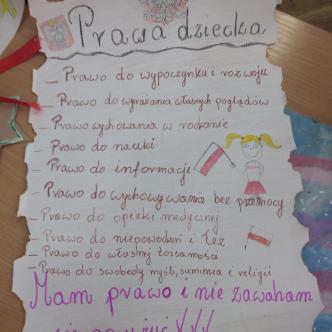 Prawa dziecka
– Prawo do wypoczynku i rozwoju
– Prawo do wyrażania własnych poglądów
– Prawo wychowania w rodzinie
– Prawo do nauki
– Prawo do informacji
– Prawo do wychowywania bez przemocy
– Prawo do opieki medycznej
– Prawo do niepowodzeń i łez
– Prawo do własnej tożsamości
– Prawo do swobody myśli, sumienia i religii
Mam prawo i nie zawaham